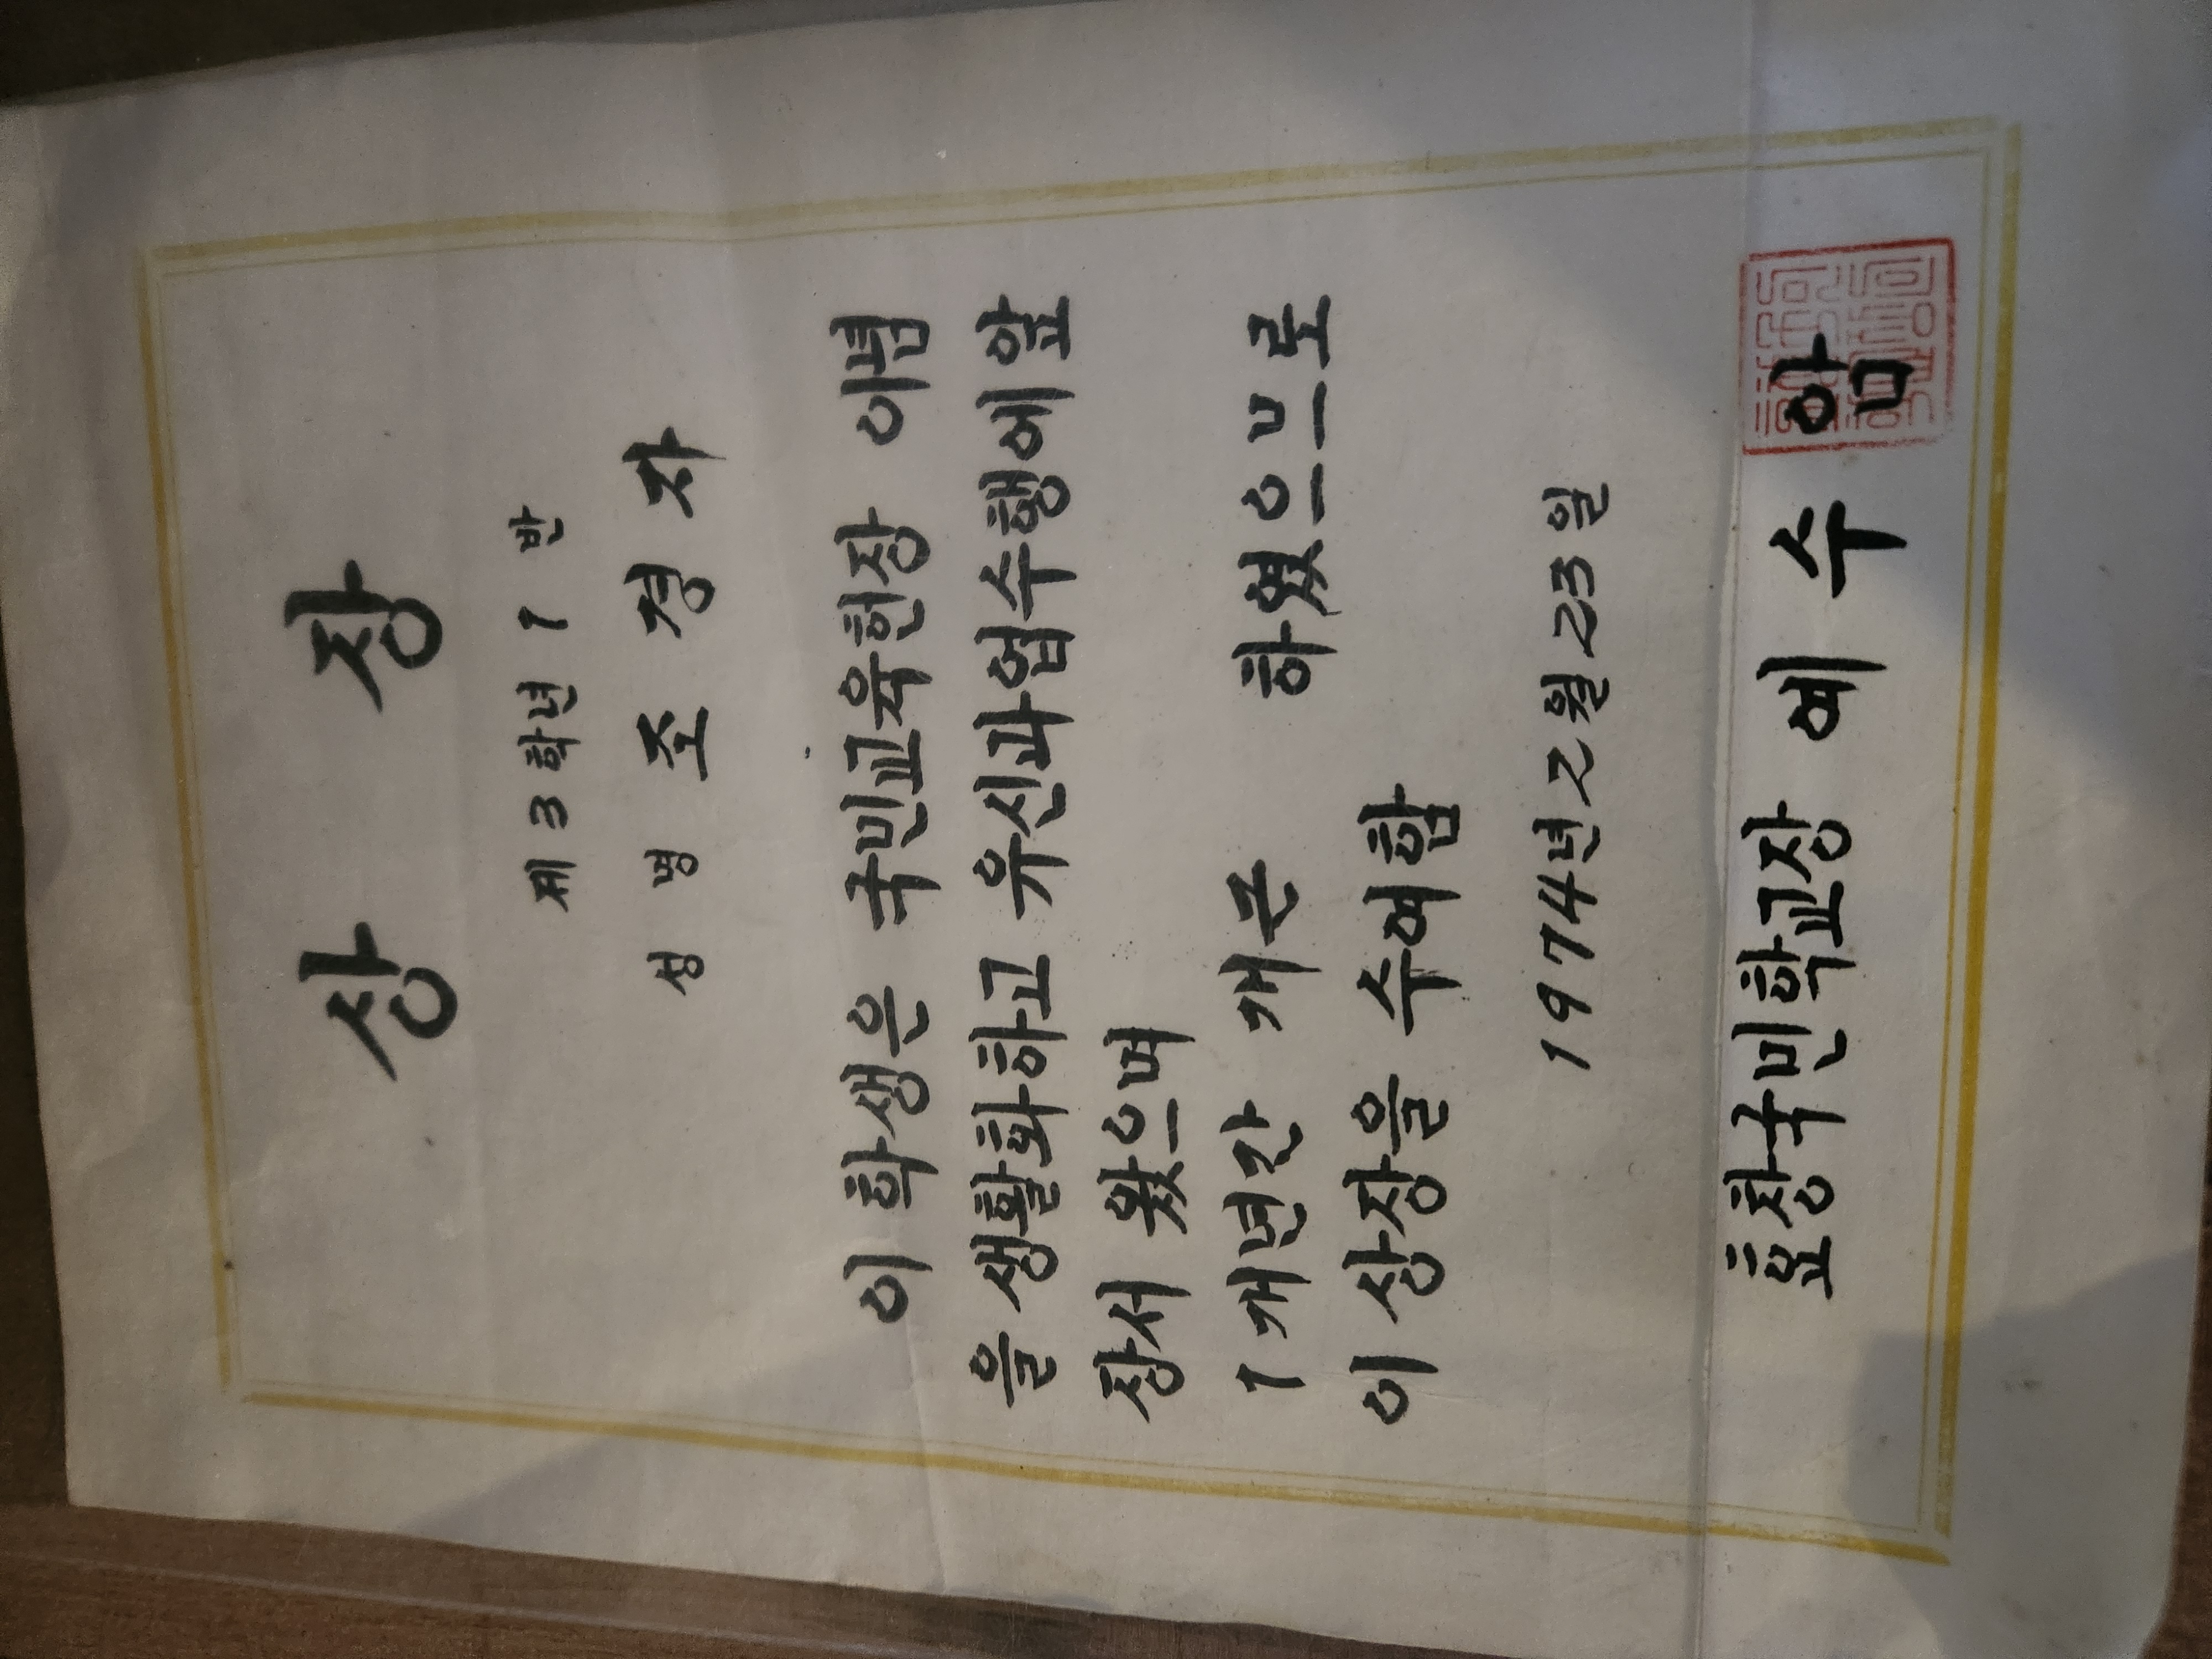 상 장
제 3 학년 1 반
성 명 조 경 자
이 학생은 국민교육헌장 이념
을 생활화하고 유신과업수행에앞
장서 왔으며
1개년간 개근 하였으므로
이 상장을 수여함
1974년 2월 23일
효창국민학교장 예 수 암